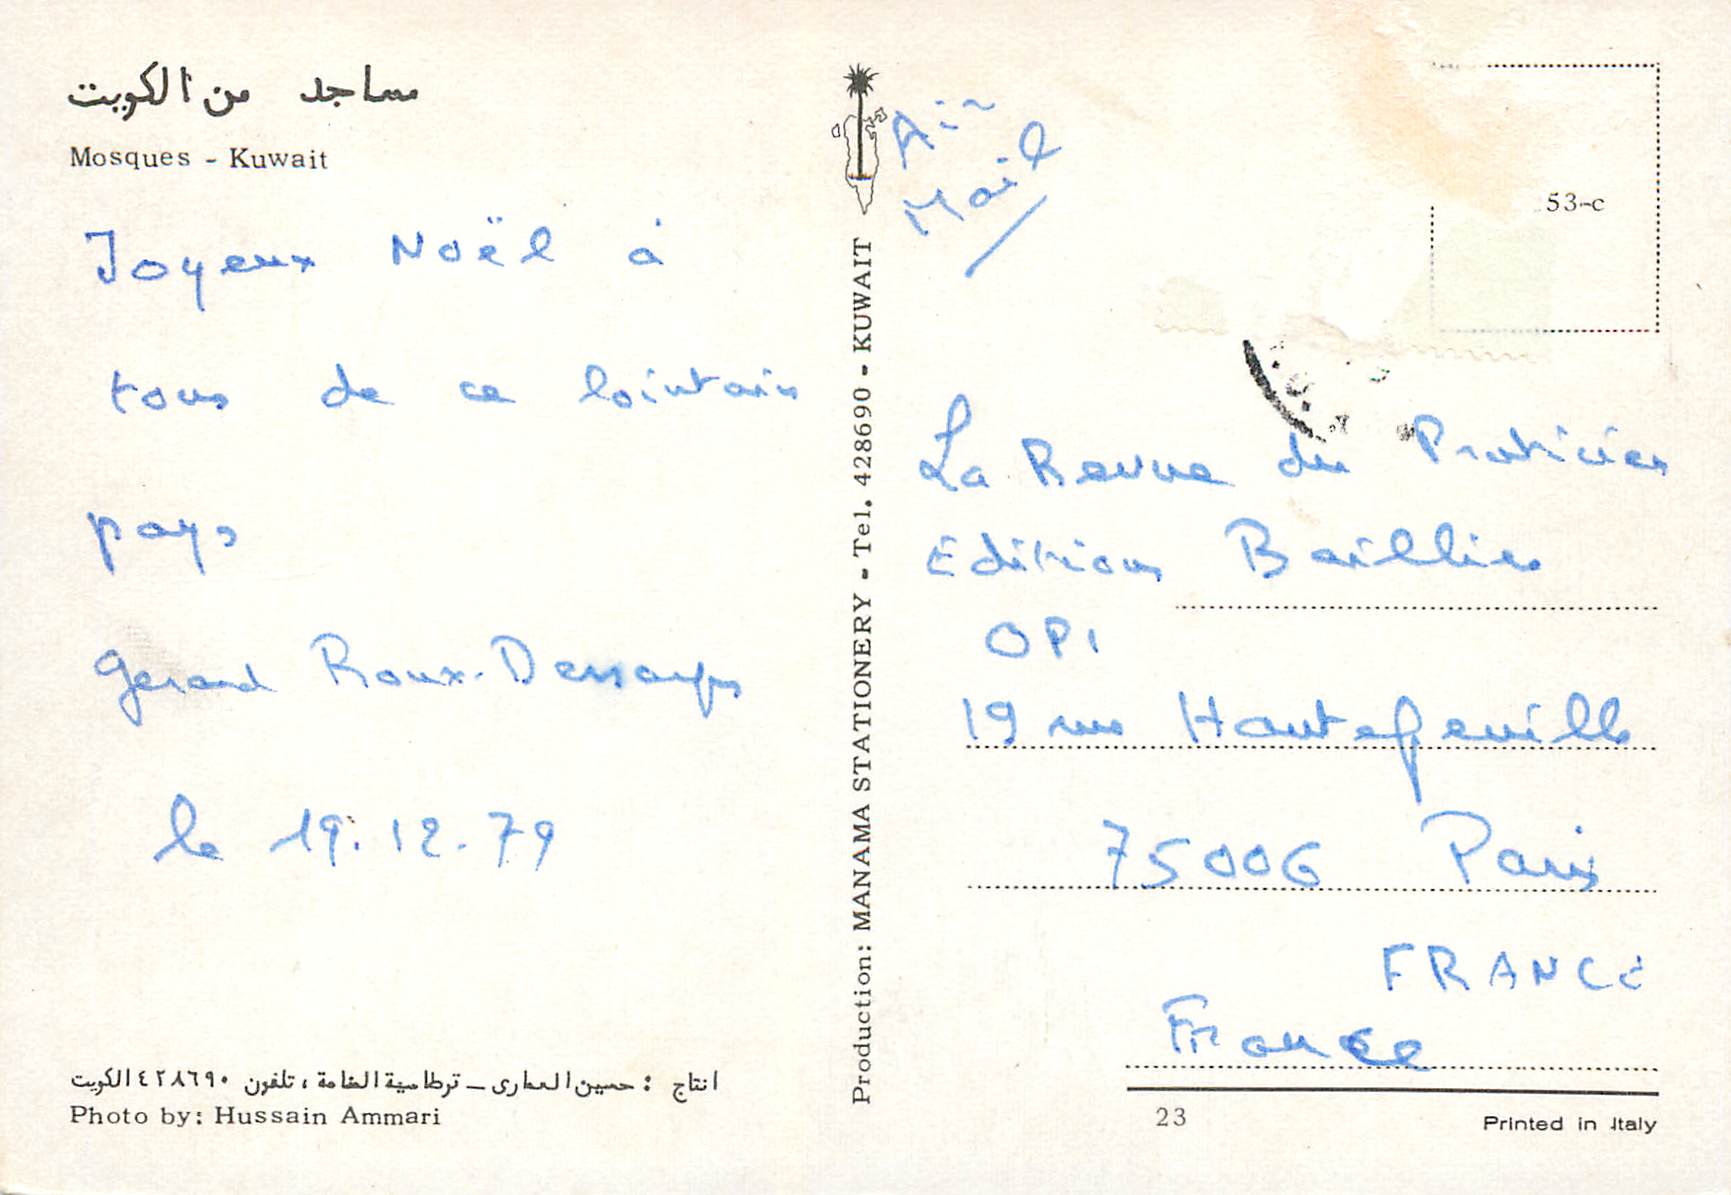 مساجد من الكويت
Mosques - Kuwait
Joyeux Noël à
tous de ce lointain
pays
Gerard Roux-Dessarps
le 19.12.79
انتاج : حسين العمارى – قرطاسية المنامة ، تلفون ٤٢٨٦٩٠ الكويت
Photo by: Hussain Ammari
Production: MANAMA STATIONERY - Tel. 428690 - KUWAIT
Air
Mail
53-c
La Revue du Praticien
Editions Baillier
OPI
19 rue Hautefeuille
75006 Paris
FRANCE
France
23
Printed in Italy